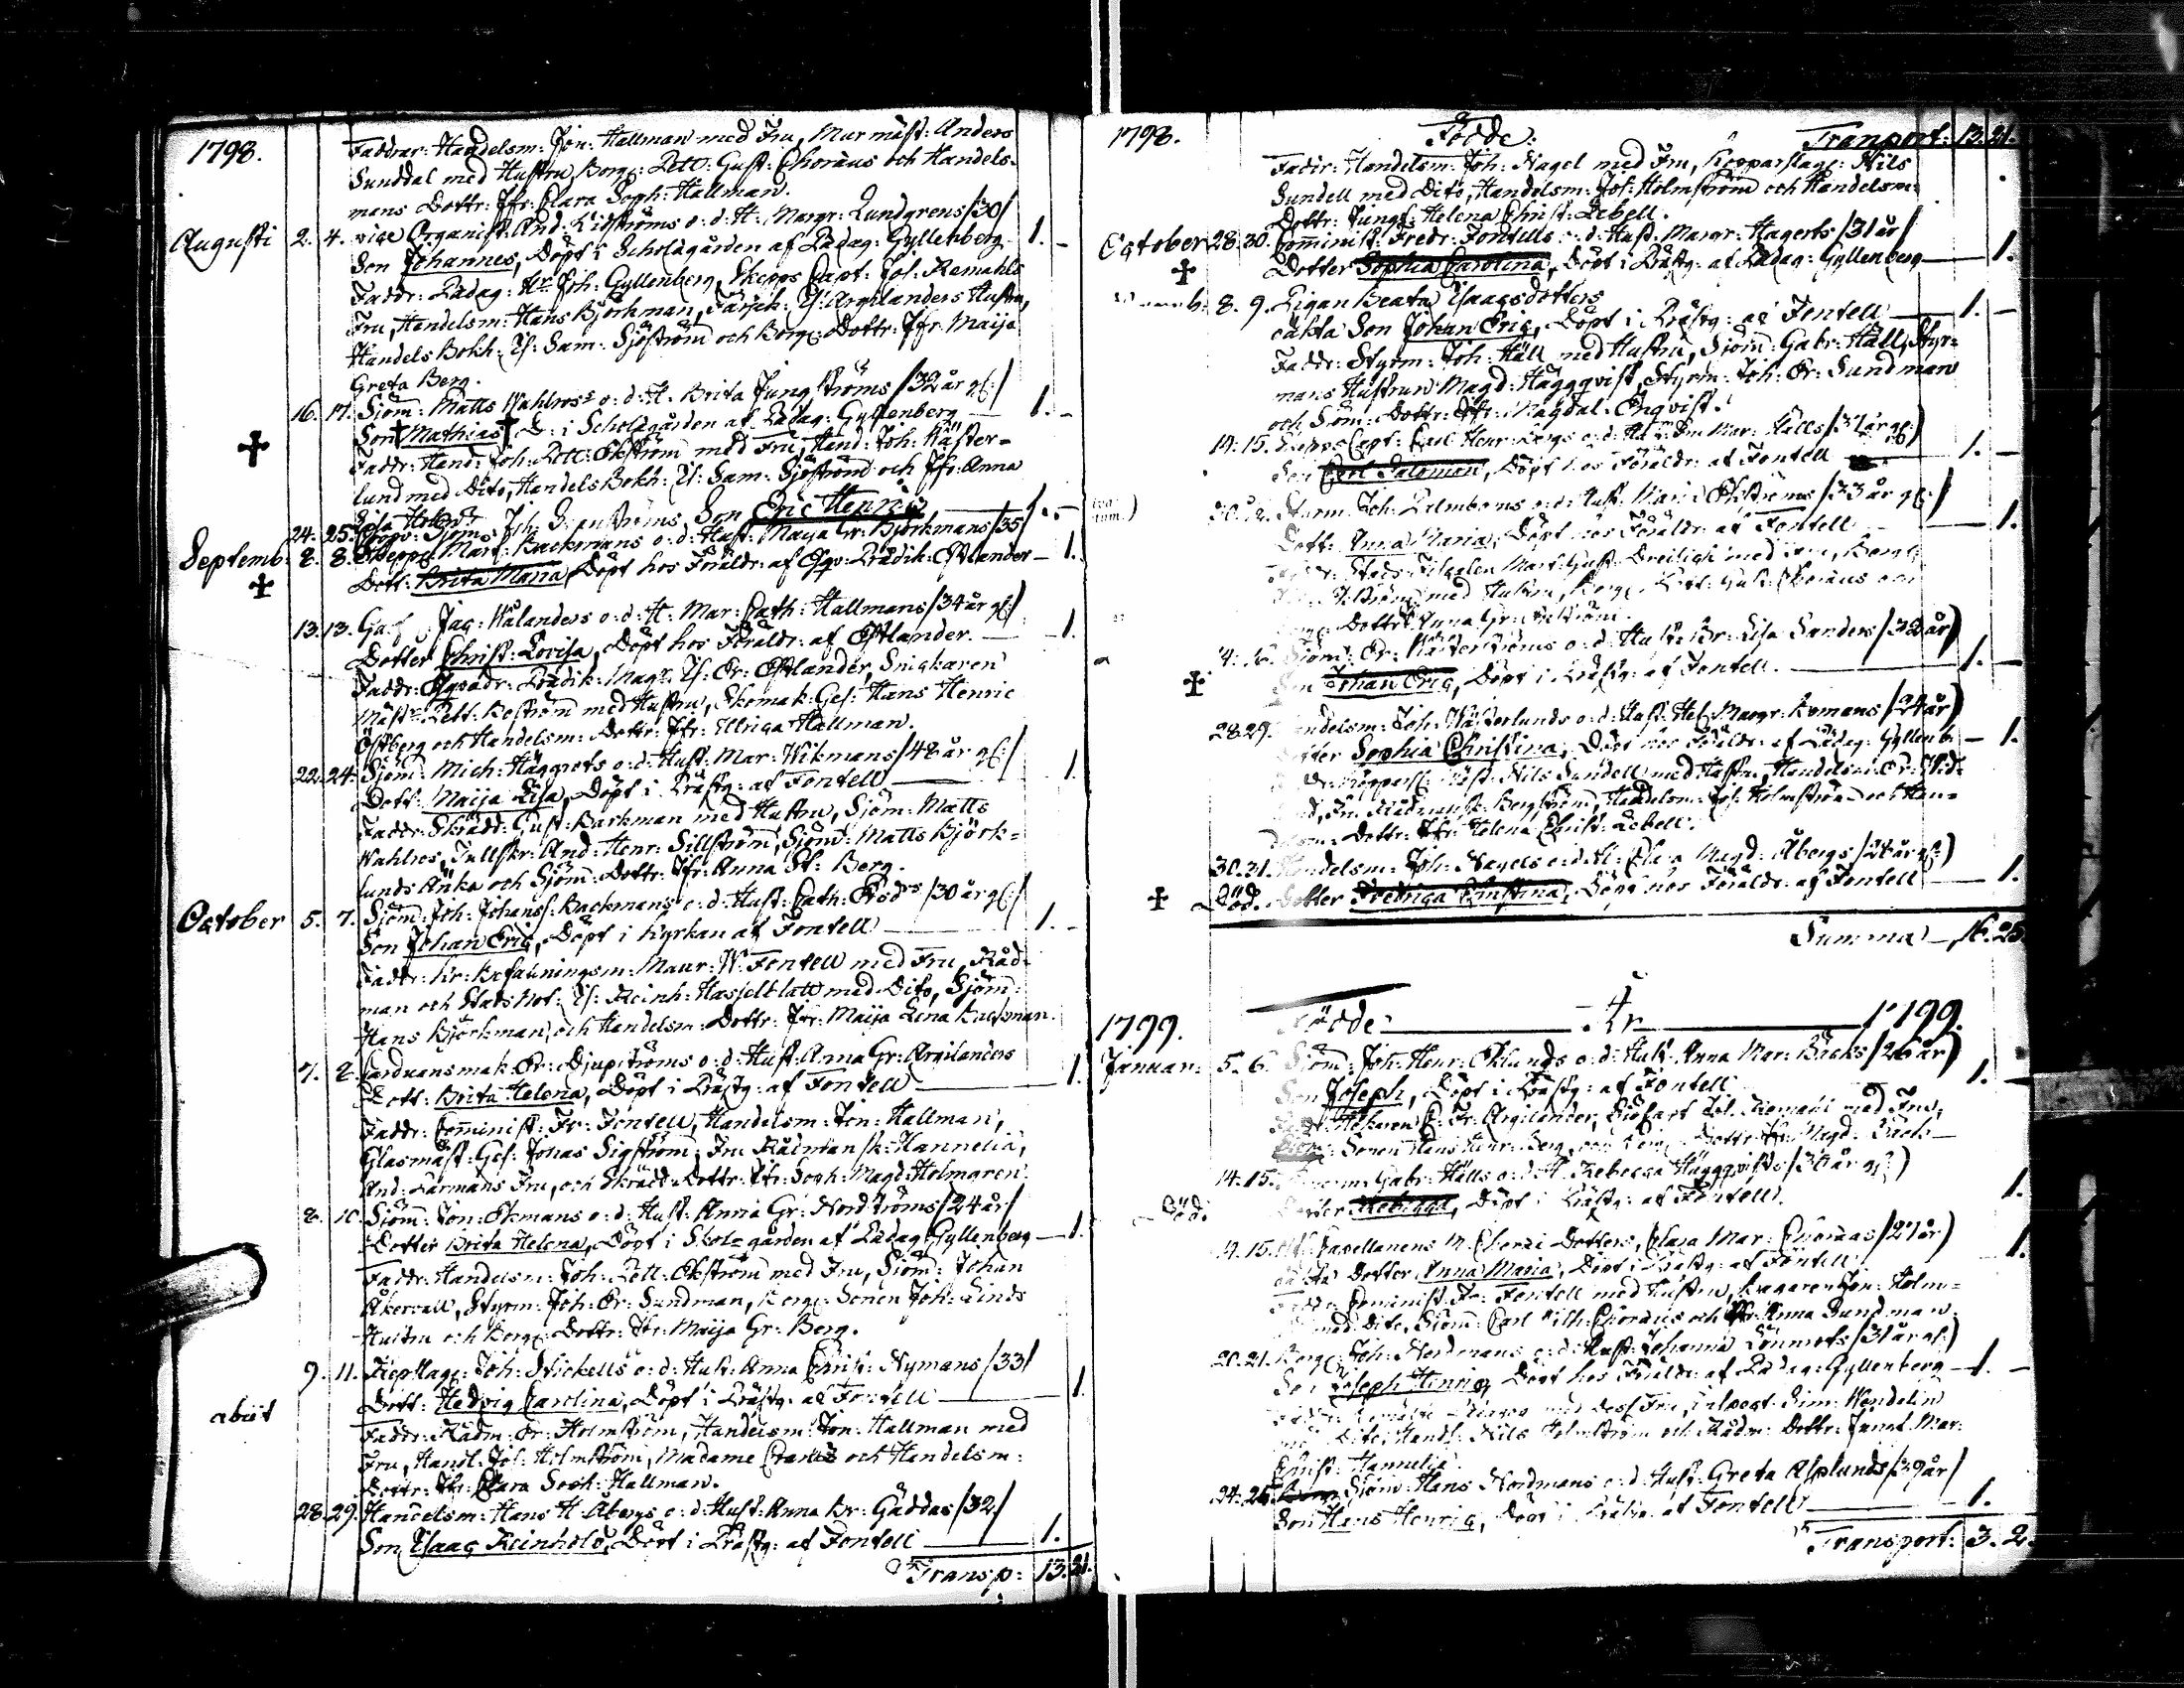 1798.
Faddrar: Handelsm: Jon: Hallman med Fru, Murmäst: Anders
Sunddal med Hustru, Borg: Pett: Gust: Choræus och Handels-
mans Dottr: Jfr: Clara Soph: Hallman.
Augusti 2. 4. vice Organist: And: Lidströms o: d: H: Margr: Lundgrens /30/ 1. -
Son Johannes, Döpt i Scholagården af Pædag: Gyllenberg
Faddr: Pædag: Hr Joh: Gyllenberg, Skepps Capt: Joh: Ramahls
Fru, Handelsm: Hans Björkman, Is: Argilanders Hustru,
Handels Bokh: Is: Sam: Sjöström och Borg: Dottr: Jfr: Maija
Greta Berg.
16. 17. Sjöm: Matts Wahlros's o: d: H: Brita Jungströms /32 år gl:/ 1. -
Son Mathias D: i Scholagården af Pædag: Gyllenberg
Faddr: Hand: Joh: Pett: Ekström med Fru, Hand: Joh: Wäster-
lund med Dito, Handels Bokh: Is: Sam: Sjöström och Jfr: Anna
Lisa
24. 25. Sjöms Joh: Son Eric Henric 1. -
Septemb: 8. 8. Skepps Mart: Backmans o: d: Hust: Maija Gr: Björkmans /35/
Dott: Brita Maria Döpt hos Föräldr: af Esqv: Prædik: Estlander 1.
13. 13. Jac: Wälanders o: d: H: Mar: Cath: Hallmans /34 år gl:/
Dotter Christ: Lovisa, Döpt hos Föräldr: af Estlander. 1.
Faddr: Esqvadr: Prædik: Magr: Is: Er: Estlander, Snickaren
Mästr: Pett: Boström med Hustru, Skomak: Ges: Hans Henric
Östberg och Handelsm: Dottr: Jfr: Ulrica Hallman.
22. 24. Sjöm: Mich: Häggrots o: d: Hust: Mar: Wikmans /48 år gl:/
Dott: Maija Lisa, Döpt i Prästg: af Fontell 1.
Faddr: Skrädd: Gust: Barkman med Hustru, Sjöm: Matts
Wahlros, Tullskr: And: Henr: Sillström, Sjöm: Matts Björk=
lunds Änka och Sjöm: Dottr: Jfr: Anna St: Berg.
October 5. 7. Sjöm: Joh: Johanss: Backmans o: d: Hust: Cath: /30 år gl:/
Son Johan Eric, Döpt i Kyrkan af Fontell 1. -
Faddr: Kr: Befallningsm: Maur: W: Fontell med Fru, Råd-
man och Stads Not: Is: Reinh: Hasselblatt med Dito, Sjöm:
Hans Björkman, och Handelsm: Dottr: Jfr: Maija Lena Backman.
7. 8. Carduansmak: Er: Djupströms o: d: Hust: Anna Gr: Argilanders
Dott: Brita Helena, Döpt i Prästg: af Fontell 1.
Faddr: Com̄inist: Fr: Fontell, Handelsm: Jon: Hallman,
Glasmäst: Ges: Jonas Sigström, Fru Rådmansk: Hannelia,
And: Larmans Fru, och Skrädd: Dottr: Jfr: Soph: Magd: Holmgren.
8. 10. Sjöm: Jon: Ekmans o: d: Hust: Anna Gr: Nordströms /24 år/
Dotter Brita Helena, Döpt i Skolegården af Pædag: Gyllenberg 1.
Faddr: Handelsm: Joh: Pett: Ekström med Fru, Sjöm: Johan
Åkervall, Styrm: Joh: Er: Sundman, Borg: Sonen Joh: Linds
Hustru och Borg: Dottr: Jfr: Maija Gr: Berg.
abiit 9. 11. Joh: Nickells o: d: Hust: Anna Christ: Nymans /33/
Dott: Hedvig Carolina, Döpt i Prästg: af Fontell 1.
Faddr: Rådm: Er: Holmström, Handelsm: Jon: Hallman med
Fru, Handl: Jos: Holmström, Madame och Handelsm:
Dottr: Jfr: Clara Soph: Hallman.
28. 29. Handelsm: Hans H: Åbergs o: d: Hust: Anna Br: Gäddas /32/
Son Isaac Reinhold, Döpt i Prästg: af Fontell 1.
Transp: 13. 21.
1798. Födde: Transport: 13. 21.
Faddr: Handelsm: Joh: Nagel med Fru, Kopparslag: Nils
Sundell med Dito, Handelsm: Jos: Holmström och Handelsm:
Dottr: Jungf: Helena Christ: Lebell.
October 28. 30. Com̄inist: Fredr: Fontells o: d: Hust: Margr: Hagerts /31 år/
Dotter Sophia Carolina, Döpt i Prästg: af Pædag: Gyllenberg 1.
8. 9. Pigan Beata Isaacsdotters
oäkta Son Johan Eric, Döpt i Prästg: af Fontell 1. -
Faddr: Styrm: Joh: Häll med Hustru, Sjöm: Gabr: Häll, Styr=
mans Hustrun Magd: Häggqvist, Styrm: Joh: Er: Sundman
och Sjöm: Dottr: Jfr: Magdal: Enqvist.
14. 15. Skepps Capt: Carl Henr: Bergs o: d: Mar: Hälls /37 år gl:/
Son Carl Salomon, Döpt hos Föräldr: af Fontell 1. -
Styrm: Joh: Palmboms o: d: Hust: Maria Ekströms /33 år gl:/
Dott: Anna Maria, Döpt hos Föräldr: af Fontell 1.
Mart: Gust: med Fru, Borg:
med Hustru, Borg: Pett: Gust: Choræus och
Dottr: Anna Gr:
14. 16. Sjöm: Er: Wäster o: d: Hust: Br: Lisa Sanders /32 år/
Son Johan Eric, Döpt i Prästg: af Fontell. 1. -
28. 29. Handelsm: Joh: Wästerlunds o: d: Hust: Hel: Margr: /24 år/
Dotter Sophia Christina, Döpt hos Föräldr: af Pædag: Gyllenb: 1.
Nils Sundell med Hustru, Handelsm: Er:
Fru Rådmansk: Bergström, Handelsm: Jos: Holmström och Han=
delsm: Dottr: Jfr: Helena Christ: Lebell.
30. 31. Handelsm: Joh: Nagels o: d: H: Clara Magd: Åbergs /24 år gl:/
Död. Dotter Fredrica Christina, Döpt hos Föräldr: af Fontell 1.
Summa 16. 25.
1799. Födde År 1799.
Januari: 5. 6. Sjöm: Joh: Henr: Eklunds o: d: Hust: Anna Mar: Bäcks /26 år/
Son Joseph, Döpt i Prästg: af Fontell 1. -
Fr: Argilander, Joh: Ramahl med Fru,
Sonen Hans Henr: Berg, och Dottr: Jfr: Magd: Bäck
14. 15. Gabr: Hälls o: d: H: Rebecca Häggqvists /36 år gl:/
Död. Dotter Rebecca, Döpt i Prästg: af Fontell. 1.
14. 15. Capellanens M: Choræi Dotters, Clara Mar: Choræas /27 år/
oäkta Dotter Anna Maria, Döpt i Prästg: af Fontell. 1.
Faddr: Com̄inist: Fr: Fontell med Hustru, Jon: Holm-
med Dito, Sjöm: Carl Wilh: Choræus och Jfr: Anna Sundman
20. 21. Borg: Joh: Nordmans o: d: Hust: Johanna Lönnrots /31 år gl:/
Son Joseph Henric, Döpt hos Föräldr: af Pædag: Gyllenberg 1. -
med dess Fru, Sim: Wendelin
med Dito, Handl: Nils Holmström och Rådm: Dottr: Jungf: Mar:
Christ: Hannelia.
24. 25. Sjöm: Hans Nordmans o: d: Hust: Greta Asplunds /39 år/
Son Hans Henric, Döpt i Prästg: af Fontell 1.
Transport: 3. 2.